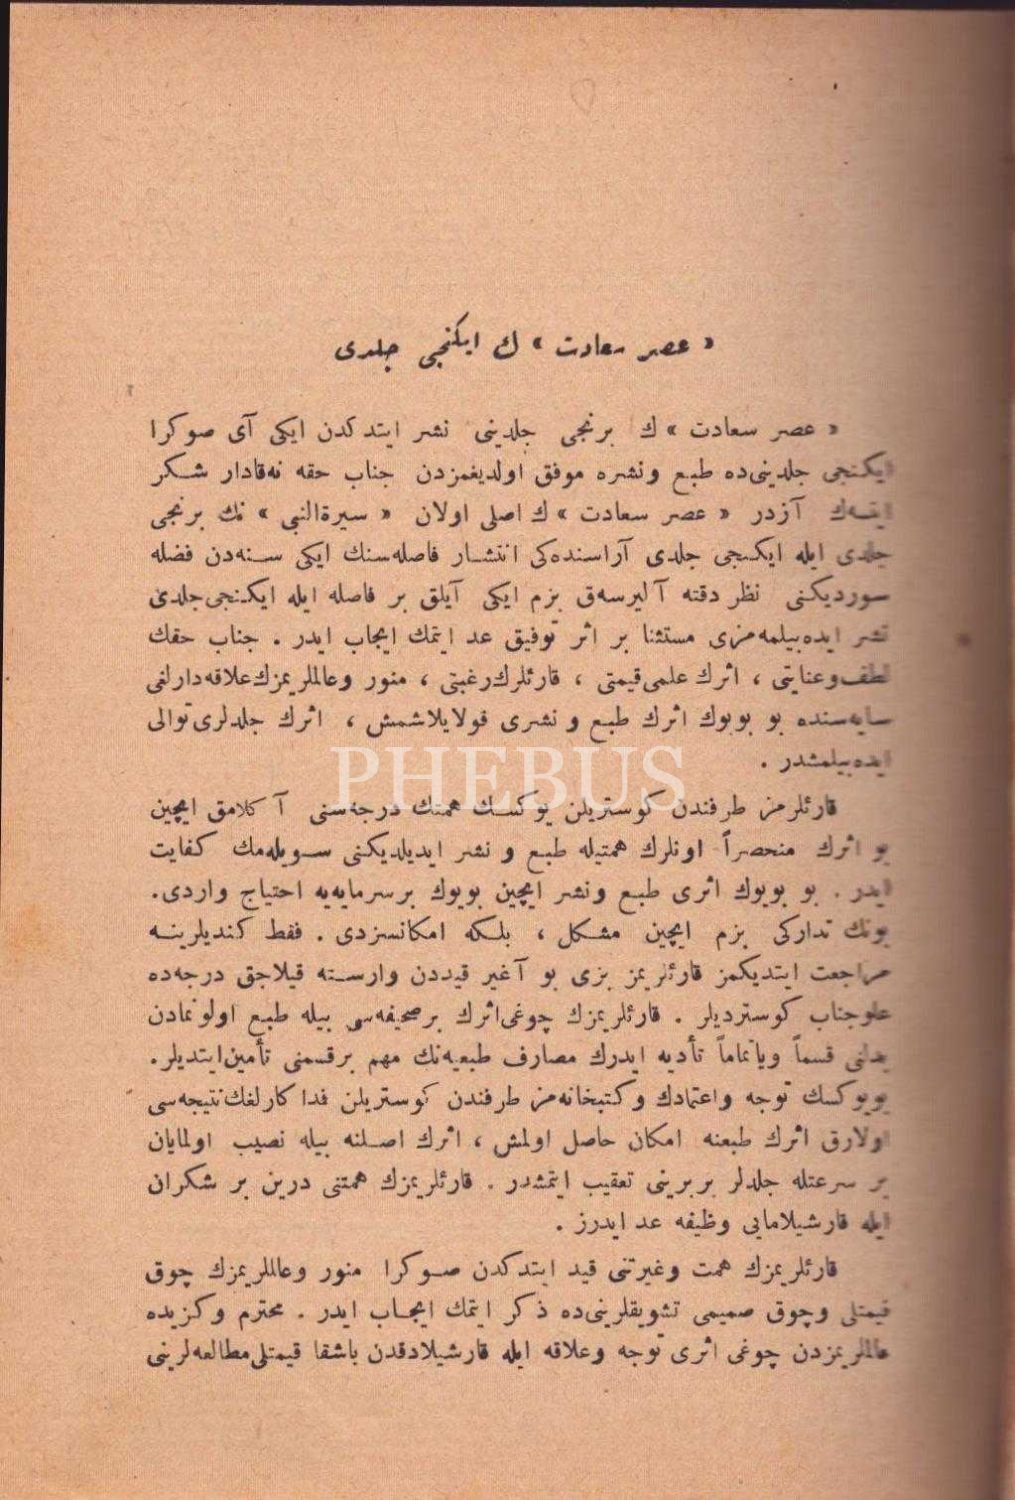 « عصر سعادت » ك ایكنجی جلدی
« عصر سعادت » ك برنجی جلدینی نشر ایتدكدن ایكی آی صوكرا
ایكنجی جلدینی‌ده طبع ونشره موفق اولدیغمزدن جناب حقه نه‌قادار شكر
ایتسه‌ك آزدر « عصر سعادت » ك اصلی اولان « سیرة‌النبی » نك برنجی
جلدی ایله ایكنجی جلدی آراسنده‌كی انتشار فاصله‌سنك ایكی سنه‌دن فضله
سوردیكنی نظر دقته آلیرسه‌ق بزم ایكی آیلق بر فاصله ایله ایكنجی جلدی
نشر ایده‌بیلمه‌مزی مستثنا بر اثر توفیق عد ایتمك ایجاب ایدر . جناب حقك
لطف‌وعنایتی ، اثرك علمی‌قیمتی ، قارئلرك‌رغبتی ، منور وعالملریمزك‌علاقه‌دارلغی
سایه‌سنده بو بویوك اثرك طبع و نشری قولایلاشمش ، اثرك جلدلری توالی
ایده‌بیلمشدر .
PHEBUS
قارئلرمز طرفندن كوستریلن یوكسك همتك درجه‌سنی آكلامق ایچین
بو اثرك منحصراً اونلرك همتیله طبع و نشر ایدیلدیكنی سویله‌مك كفایت
ایدر . بو بویوك اثری طبع ونشر ایچین بویوك برسرمایه‌یه احتیاج واردی.
بونك تداركی بزم ایچین مشكل ، بلكه امكانسزدی . فقط كندیلرینه
مراجعت ایتدیكمز قارئلریمز بزی بو آغیر قیددن وارسته قیلاجق درجه‌ده
علوجناب كوستردیلر . قارئلریمزك چوغی‌اثرك برصحیفه‌سی بیله طبع اولونمادن
بدلنی قسماً ویاتماماً تأدیه ایدرك مصارف طبعیه‌نك مهم برقسمنی تأمین‌ایتدیلر.
بویوكسك توجه واعتمادك وكتبخانه‌مز طرفندن كوستریلن فداكارلغك‌نتیجه‌سی
اولارق اثرك طبعنه امكان حاصل اولمش ، اثرك اصلنه بیله نصیب اولمایان
بر سرعتله جلدلر بربرینی تعقیب ایتمشدر . قارئلریمزك همتنی درین بر شكران
ایله قارشیلامایی وظیفه عد ایدرز .
قارئلریمزك همت وغیرتنی قید ایتدكدن صوكرا منور وعالملریمزك چوق
قیمتلی وچوق صمیمی تشویقلرینی‌ده ذكر ایتمك ایجاب ایدر . محترم وكزیده
عالملریمزدن چوغی اثری توجه وعلاقه ایله قارشیلادقدن باشقا قیمتلی‌مطالعه‌لرینی